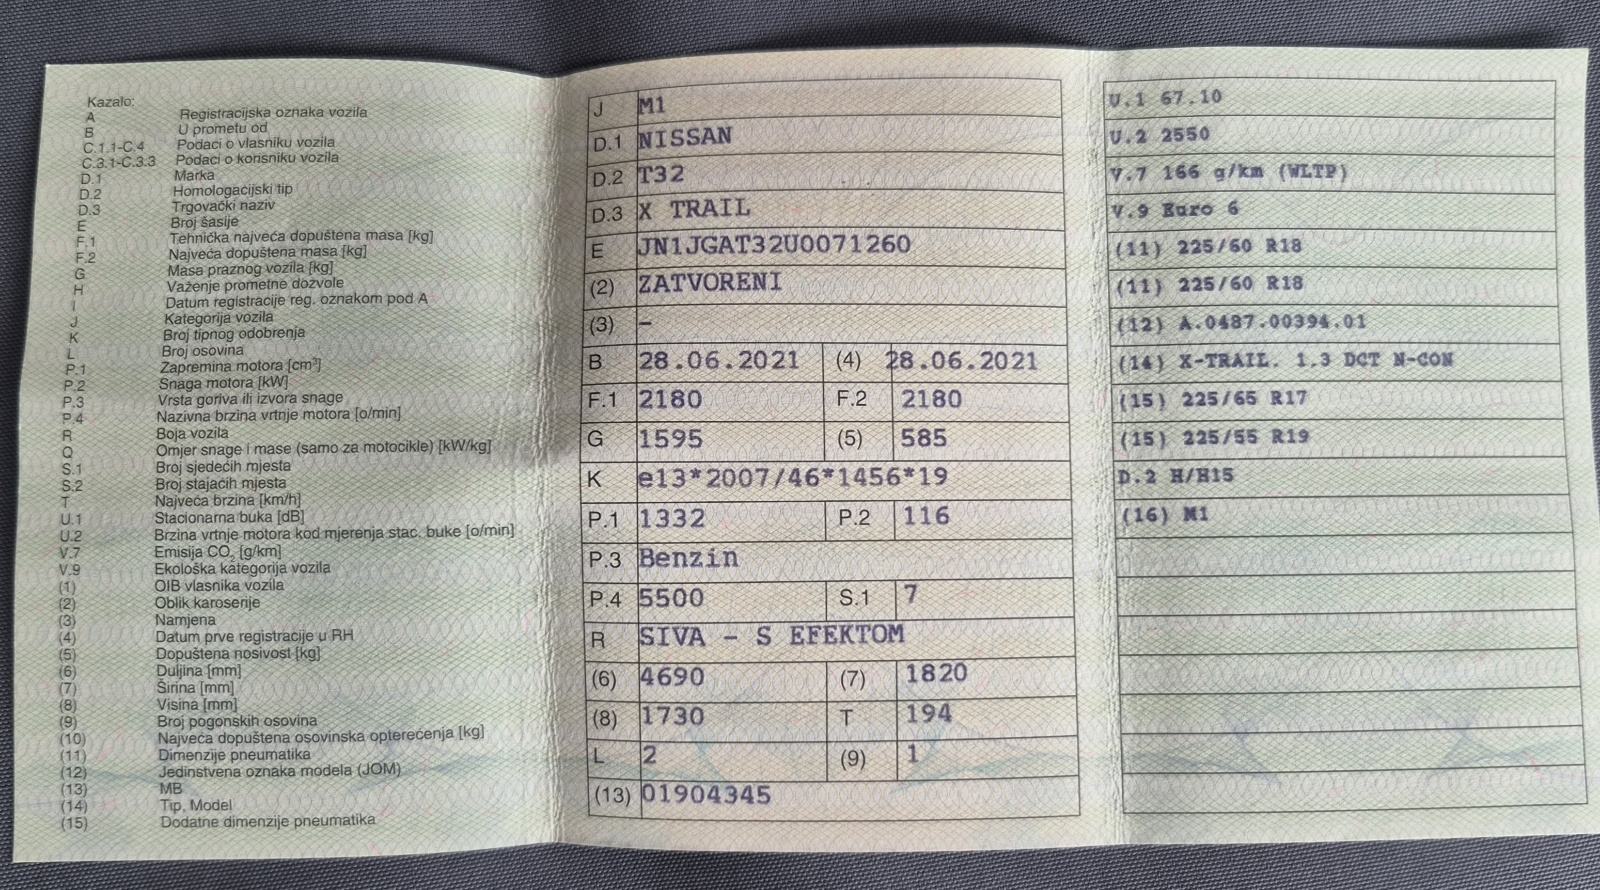 Kazalo:
A Registracijska oznaka vozila
B U prometu od
C.1.1-C.4 Podaci o vlasniku vozila
C.3.1-C.3.3 Podaci o korisniku vozila
D.1 Marka
D.2 Homologacijski tip
D.3 Trgovački naziv
E Broj šasije
F.1 Tehnička najveća dopuštena masa [kg]
F.2 Najveća dopuštena masa [kg]
G Masa praznog vozila [kg]
H Važenje prometne dozvole
I Datum registracije reg. oznakom pod A
J Kategorija vozila
K Broj tipnog odobrenja
L Broj osovina
P.1 Zapremina motora [cm³]
P.2 Snaga motora [kW]
P.3 Vrsta goriva ili izvora snage
P.4 Nazivna brzina vrtnje motora [o/min]
R Boja vozila
Q Omjer snage i mase (samo za motocikle) [kW/kg]
S.1 Broj sjedećih mjesta
S.2 Broj stajaćih mjesta
T Najveća brzina [km/h]
U.1 Stacionarna buka [dB]
U.2 Brzina vrtnje motora kod mjerenja stac. buke [o/min]
V.7 Emisija CO₂ [g/km]
V.9 Ekološka kategorija vozila
(1) OIB vlasnika vozila
(2) Oblik karoserije
(3) Namjena
(4) Datum prve registracije u RH
(5) Dopuštena nosivost [kg]
(6) Duljina [mm]
(7) Širina [mm]
(8) Visina [mm]
(9) Broj pogonskih osovina
(10) Najveća dopuštena osovinska opterećenja [kg]
(11) Dimenzije pneumatika
(12) Jedinstvena oznaka modela (JOM)
(13) MB
(14) Tip, Model
(15) Dodatne dimenzije pneumatika
J M1
D.1 NISSAN
D.2 T32
D.3 X TRAIL
E JN1JGAT32U0071260
(2) ZATVORENI
(3) –
B 28.06.2021 (4) 28.06.2021
F.1 2180 F.2 2180
G 1595 (5) 585
K e13*2007/46*1456*19
P.1 1332 P.2 116
P.3 Benzin
P.4 5500 S.1 7
R SIVA - S EFEKTOM
(6) 4690 (7) 1820
(8) 1730 T 194
L 2 (9) 1
(13) 01904345
U.1 67.10
U.2 2550
V.7 166 g/km (WLTP)
V.9 Euro 6
(11) 225/60 R18
(11) 225/60 R18
(12) A.0487.00394.01
(14) X-TRAIL. 1.3 DCT N-CON
(15) 225/65 R17
(15) 225/55 R19
D.2 H/H15
(16) M1